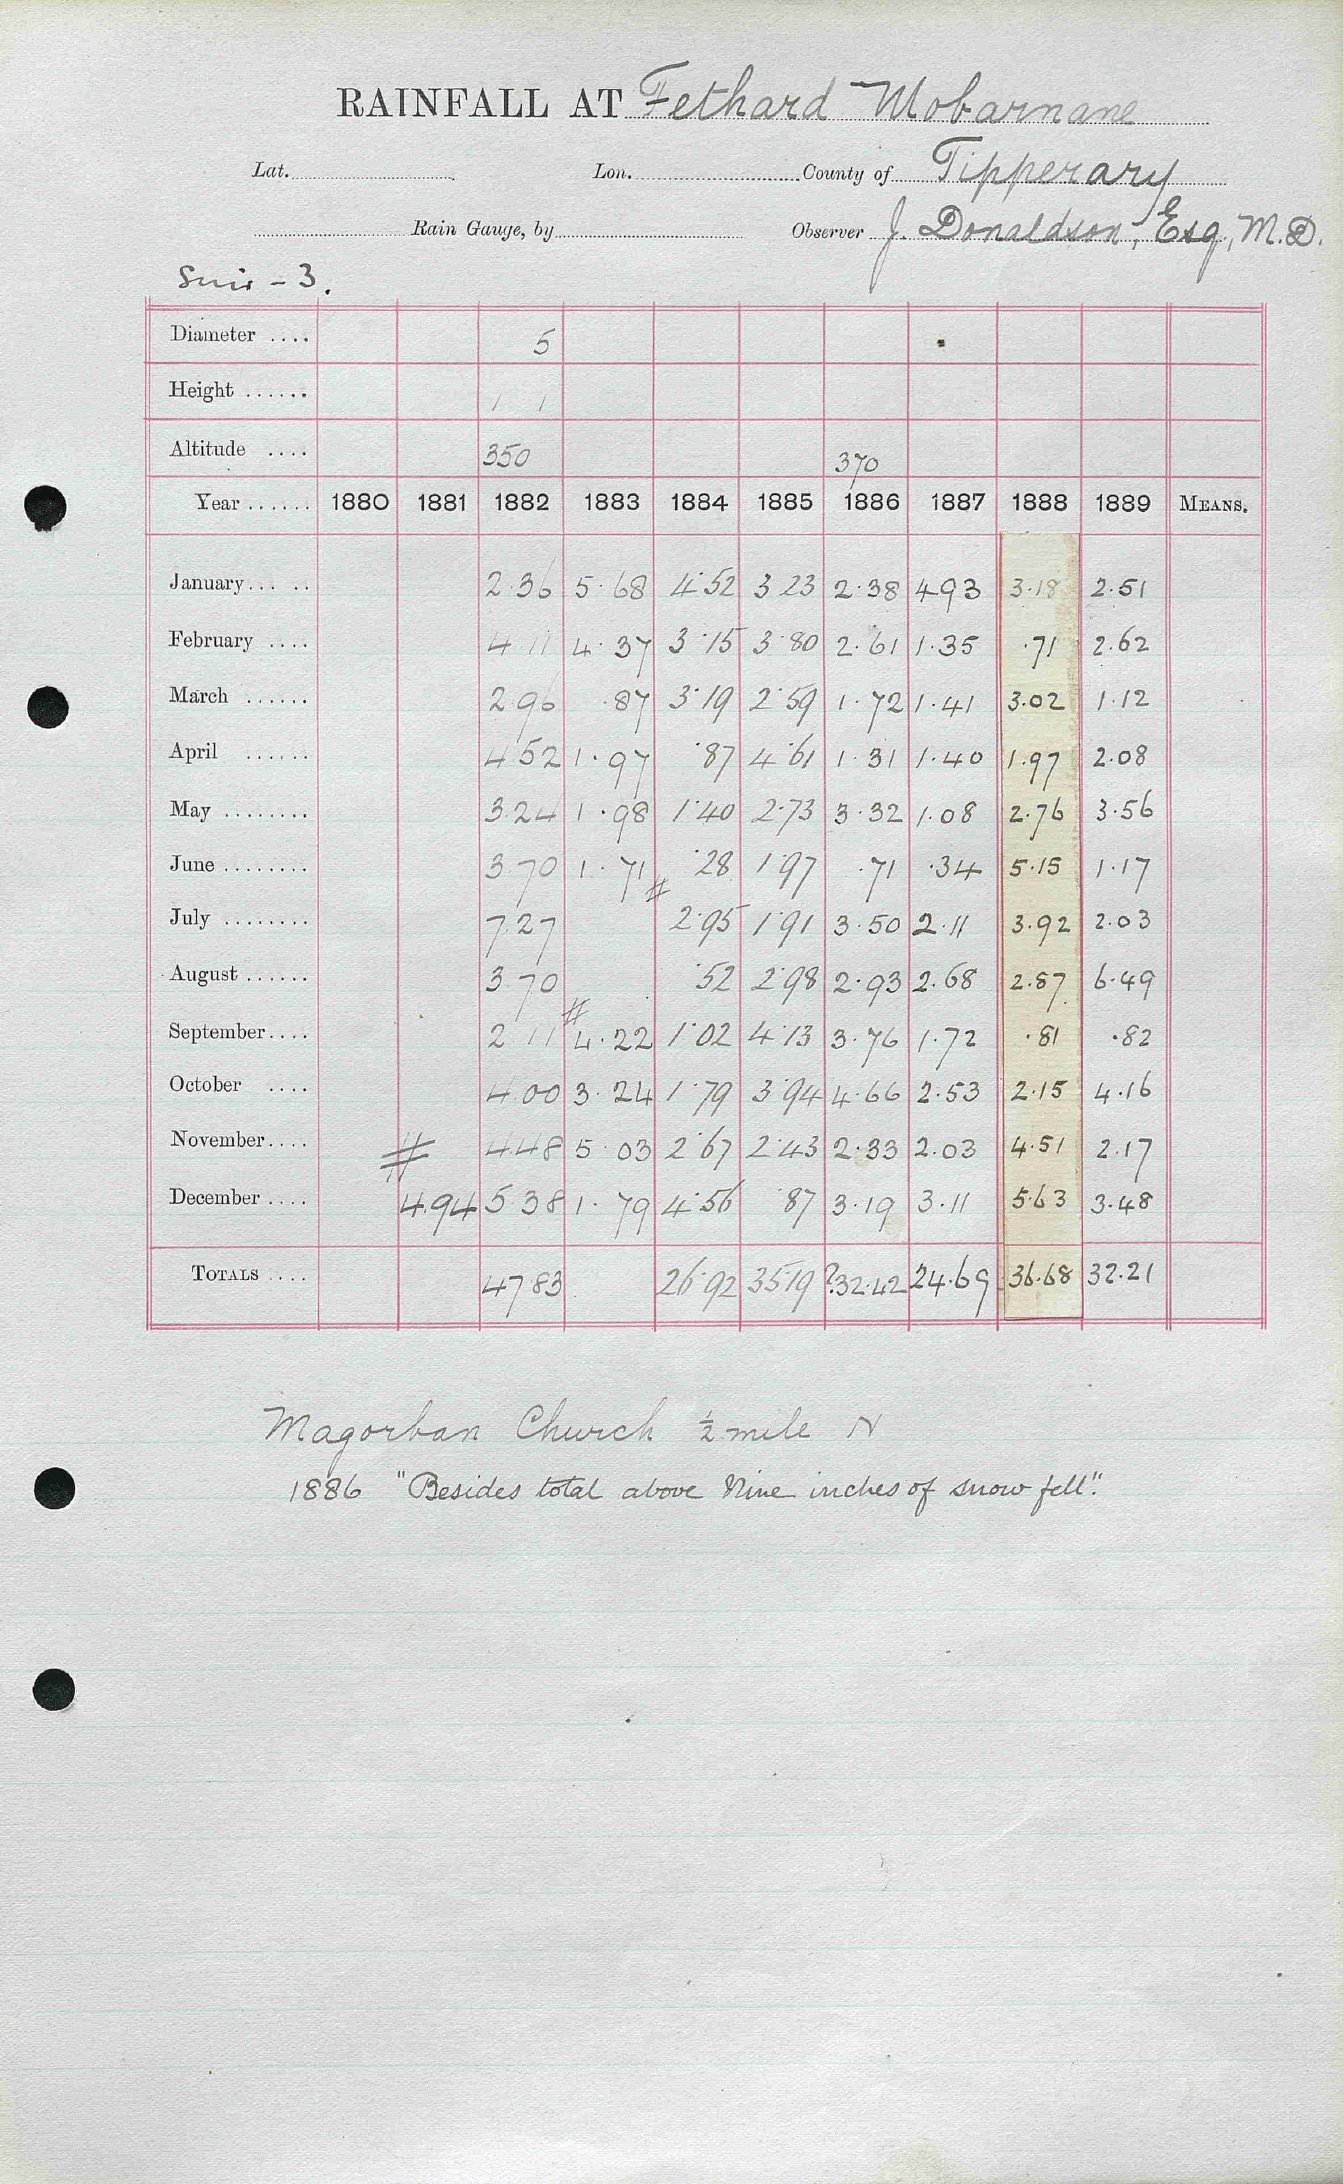 RAINFALL AT Fethard Mobarnane
Lat. Lon. County of Tipperary
Rain Gauge, by Observer J. Donaldson, Esq, M.D.
Suir - 3.
Diameter .... 5
Height ...... 1 1
Altitude .... 350 370
Year ...... 1880 1881 1882 1883 1884 1885 1886 1887 1888 1889 MEANS.
January... .. 2.36 5.68 4.52 3.23 2.38 4.93 3.18 2.51
February .... 4.11 4.37 3.15 3.80 2.61 1.35 .71 2.62
March ...... 2.96 .87 3.19 2.59 1.72 1.41 3.02 1.12
April ...... 4.52 1.97 .87 4.61 1.31 1.40 1.97 2.08
May ........ 3.24 1.98 1.40 2.73 3.32 1.08 2.76 3.56
June ........ 3.70 1.71 .28 1.97 .71 .34 5.15 1.17
July ........ 7.27 # 2.95 1.91 3.50 2.11 3.92 2.03
August ...... 3.70 .52 2.98 2.93 2.68 2.87 6.49
September.... 2.11 # 4.22 1.02 4.13 3.76 1.72 .81 .82
October .... 4.00 3.24 1.79 3.94 4.66 2.53 2.15 4.16
November.... # 4.48 5.03 2.67 2.43 2.33 2.03 4.51 2.17
December .... 4.94 5.38 1.79 4.56 .87 3.19 3.11 5.63 3.48
TOTALS .... 47.83 26.92 35.19 ?32.42 24.69 36.68 32.21
Magorban Church ½ mile N
1886 "Besides total above Nine inches of snow fell".